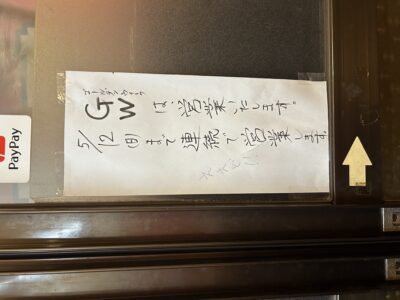 ゴールデンウィーク
GWは、営業いたします。
5/12(日)まで連続で営業します。
PayPay